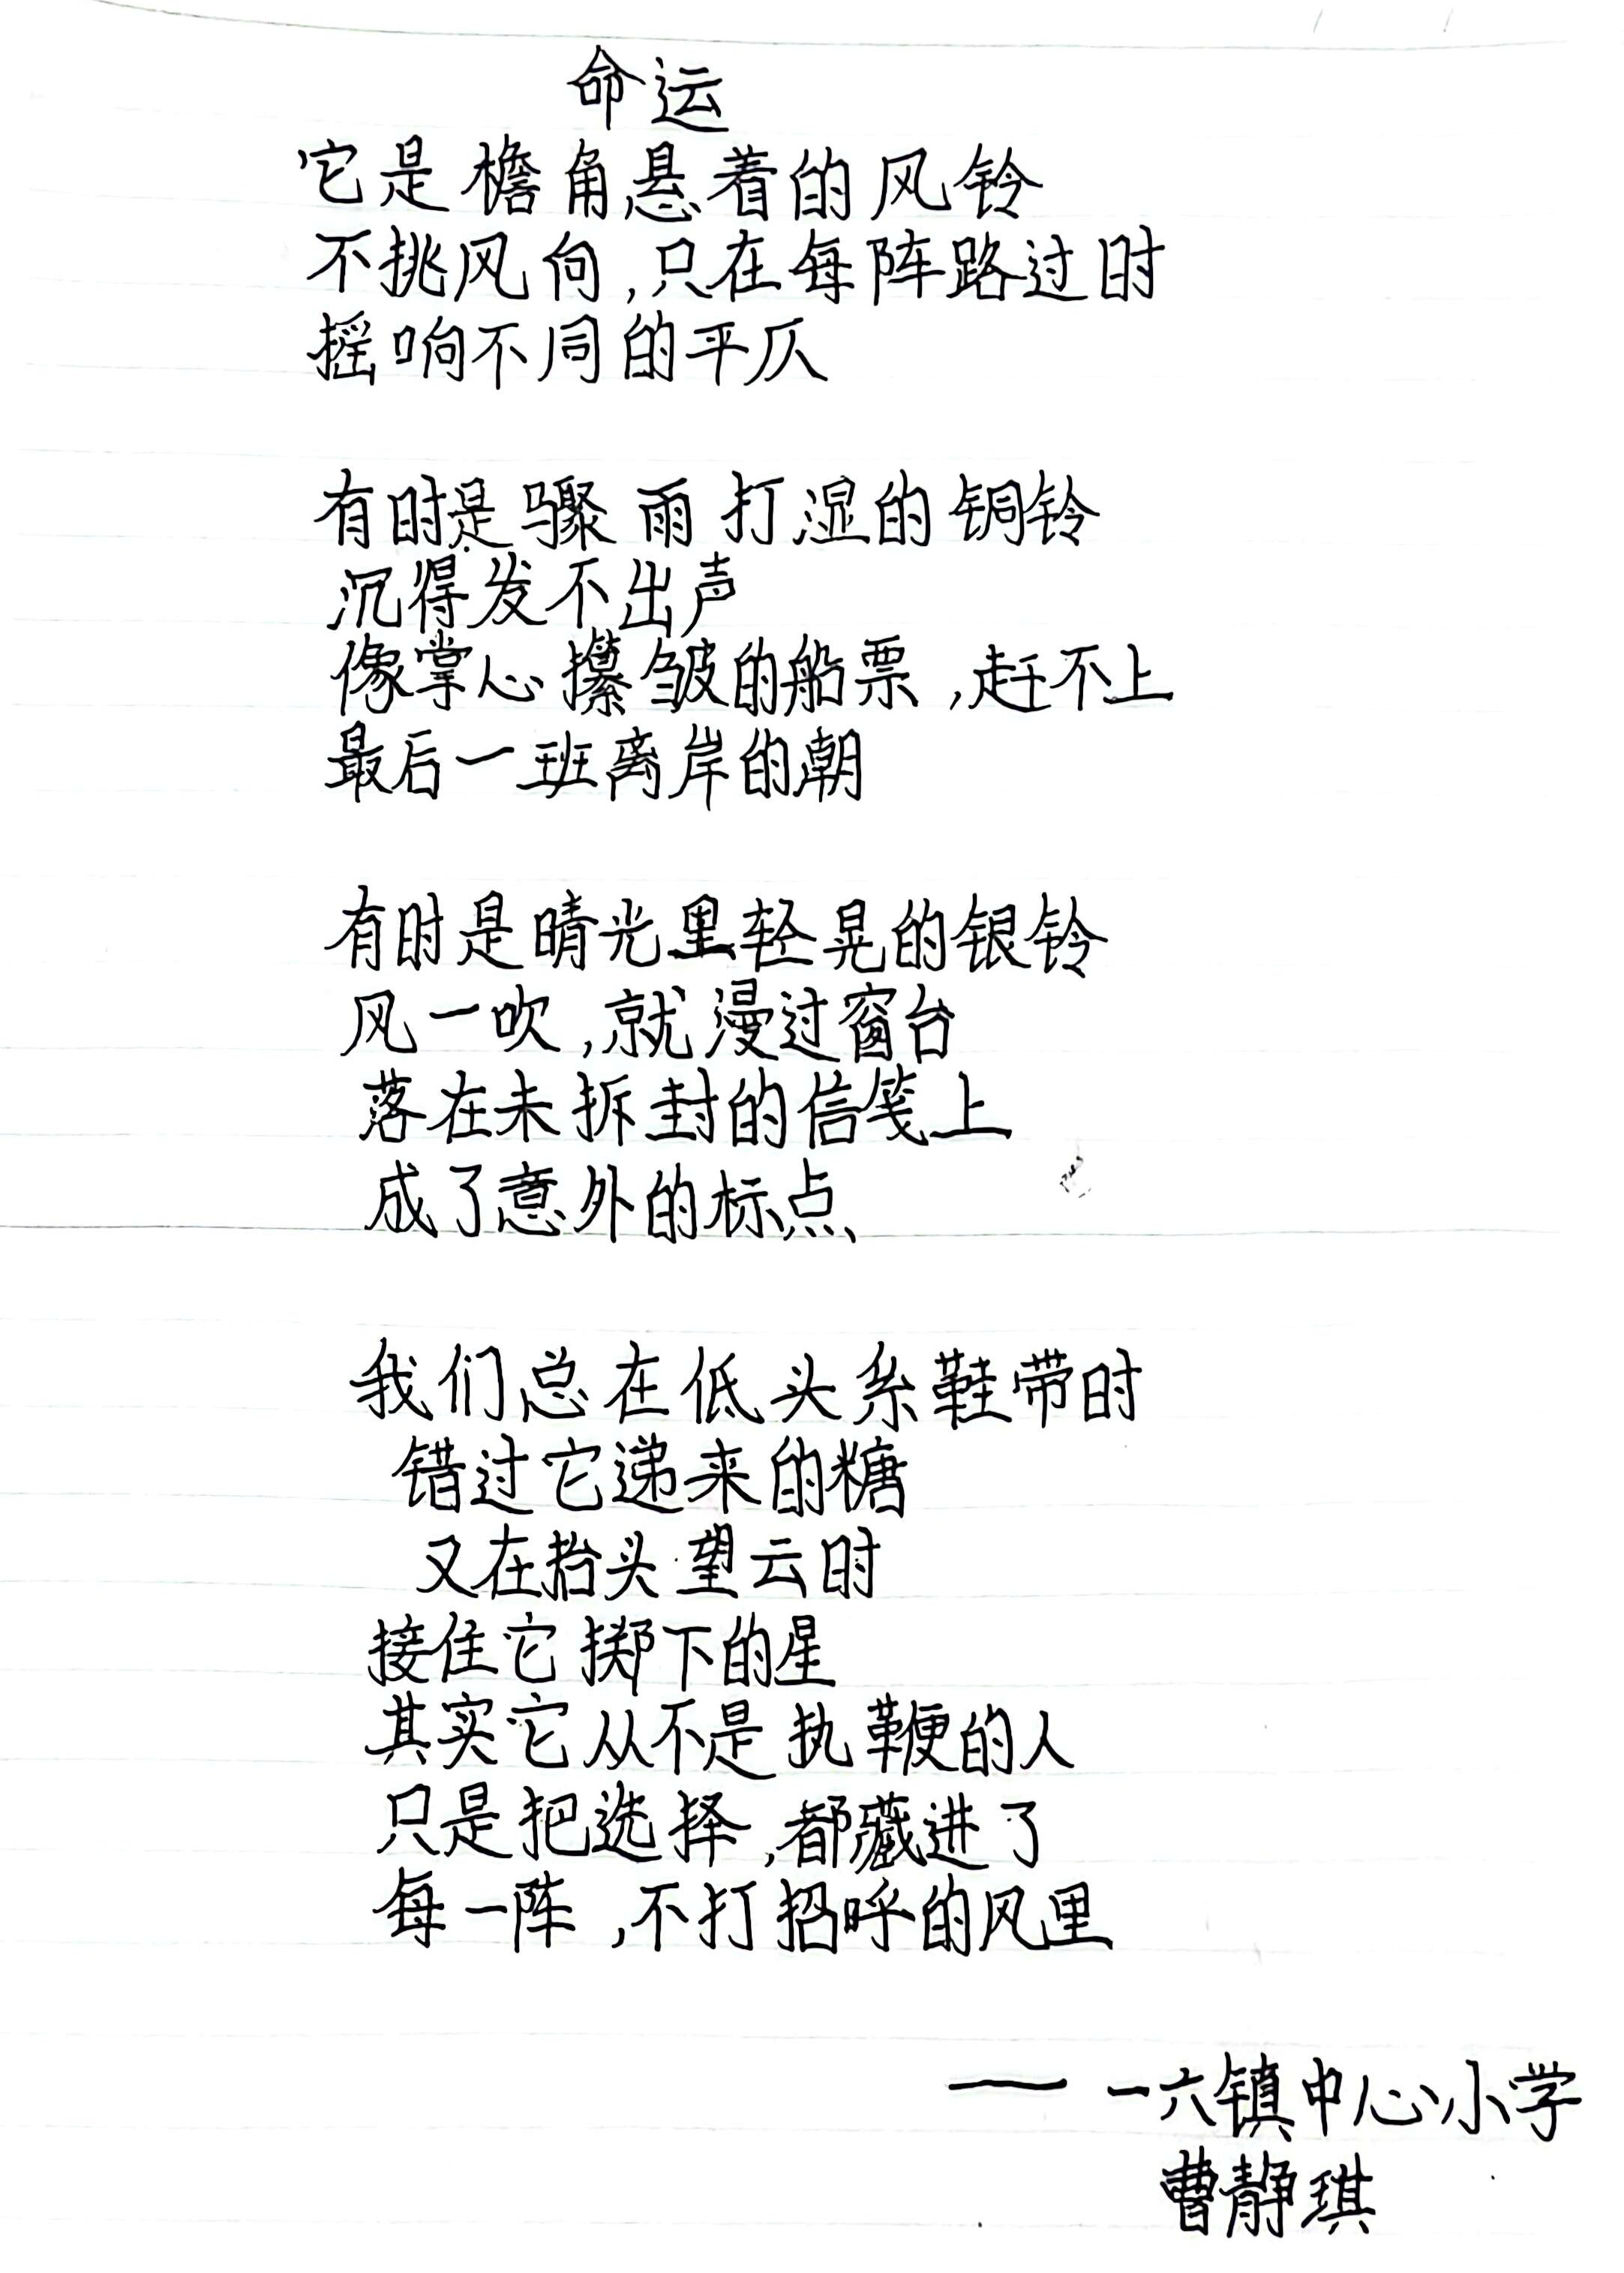 命运
它是檐角悬着的风铃
不挑风向,只在每阵路过时
摇响不同的平仄
有时是骤雨打湿的铜铃
沉得发不出声
像掌心攥皱的船票,赶不上
最后一班离岸的潮
有时是晴光里轻晃的银铃
风一吹,就漫过窗台
落在未拆封的信笺上
成了意外的标点
我们总在低头系鞋带时
错过它递来的糖
又在抬头望云时
接住它掷下的星
其实它从不是执鞭的人
只是把选择,都藏进了
每一阵,不打招呼的风里
——一六镇中心小学
曹静琪